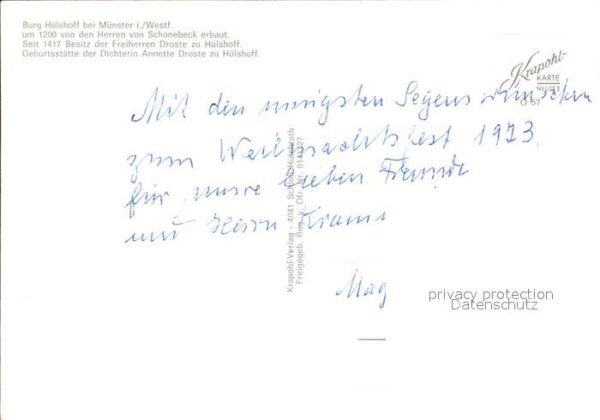 Burg Hülshoff bei Münster i./Westf.
um 1200 von den Herren von Schonebeck erbaut.
Seit 1417 Besitz der Freiherren Droste zu Hülshoff.
Geburtsstätte der Dichterin Annette Droste zu Hülshoff.
Krapohl-
KARTE
Mit den innigsten Segenswünschen
zum Weihnachtsfest 1973.
für unsre lieben Freunde
und Herrn
Mag
Krapohl-Verlag - 4041 Schloß Hülchrath
Freigegeb. Reg. v. Df. Nr.
privacy protection
Datenschutz